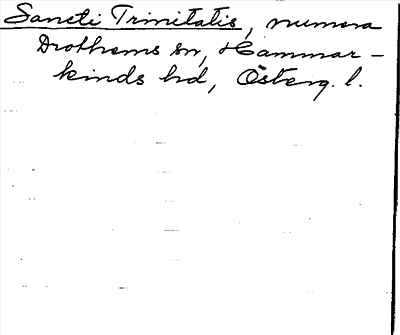 Sancti Trinitatis, numera
Drothems sn, Hammar-
kinds hd, Österg. l.